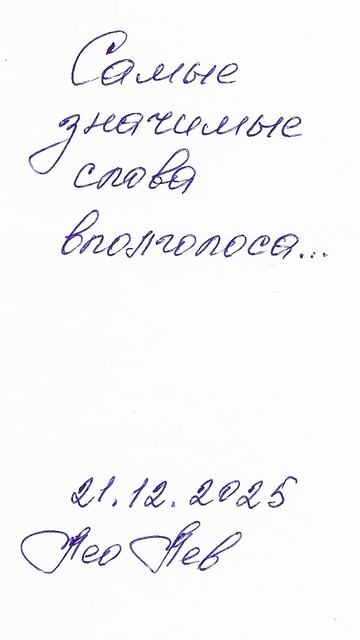 Самые
значимые
слова
вполголоса...
21.12.2025
Лео Лев